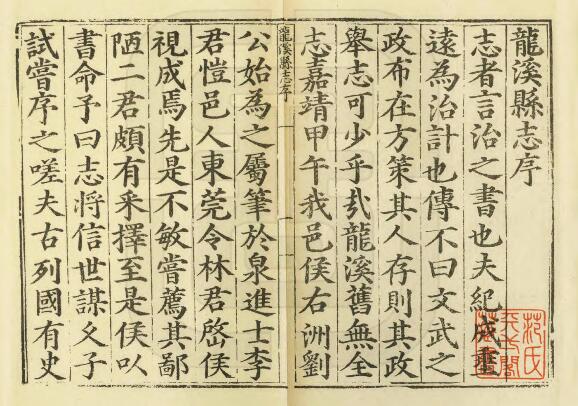 龍溪縣志序
志者言治之書也夫紀成垂
遠為治計也傳不曰文武之
政布在方策其人存則其政
舉志可少乎哉龍溪舊無全
志嘉靖甲午我邑侯右洲劉
龍溪縣志序
公始為之屬筆於泉進士李
君愷邑人東莞令林君啓侯
視成焉先是不敏嘗薦其鄙
陋二君頗有采擇至是侯以
書命予曰志將信世謀父子
試嘗序之嗟夫古列國有史
范氏
天一閣
藏書